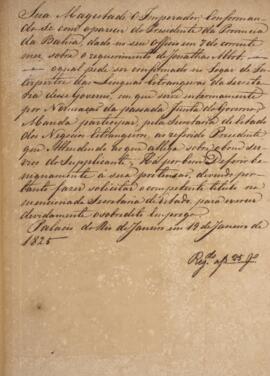 Sua Magestade O Imperador, Conforman-
do-se com o parecer do Presidente da Provincia
da Bahia, dado no seu Officio em 7 do corrente
mez sobre o requerimento de Jonathas Abbot,
o qual pede ser confirmado no lugar de In-
terprete das Linguas Estrangeiras da Secreta-
ria desse Governo, em que serve internamente
por Nomeação da passada Junta do Governo:
Manda participar, pela Secretaria de Estado
dos Negocios Estrangeiros, ao referido Presidente
que Attendendo ao que allega sobre o bom ser-
viço do Supplicante, Ha por bem Deferir be-
nignamente a sua pretensão, devendo por-
tanto fazer solicitar o competente titulo na
mencionada Secretaria de Estado, para exercer
devidamente o sobredito Emprego.
Palacio do Rio de Janeiro em 19 de Janeiro de
1825